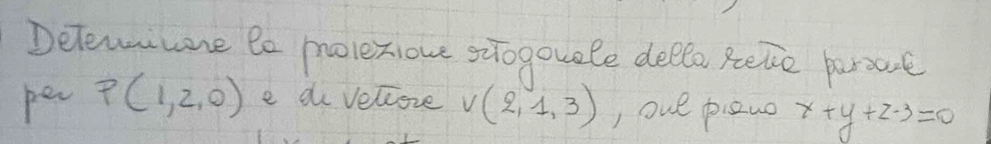 Determinare la proiezione ortogonale della retta passante
per P(1,2,0) e di vettore v(2,1,3), sul piano x+y+z-3=0